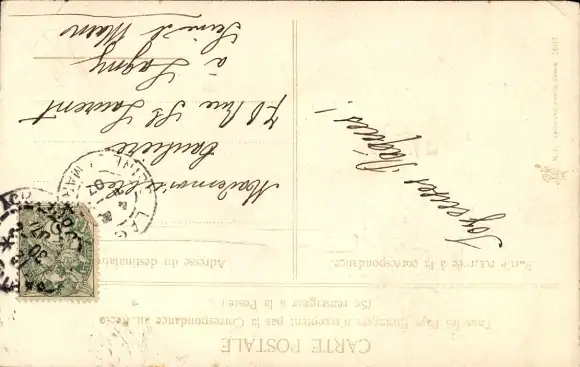 CARTE POSTALE
Tous les Pays Étrangers n'acceptent pas la Correspondance au Recto
(Se renseigner à la Poste.)
Partie réservée à la correspondance.
Adresse du destinataire
Joyeuses Pâques!
Mademoiselle
78 Rue St Laurent
à Lagny
Seine & Marne
LAGNY
SEINE
MAR
07
30